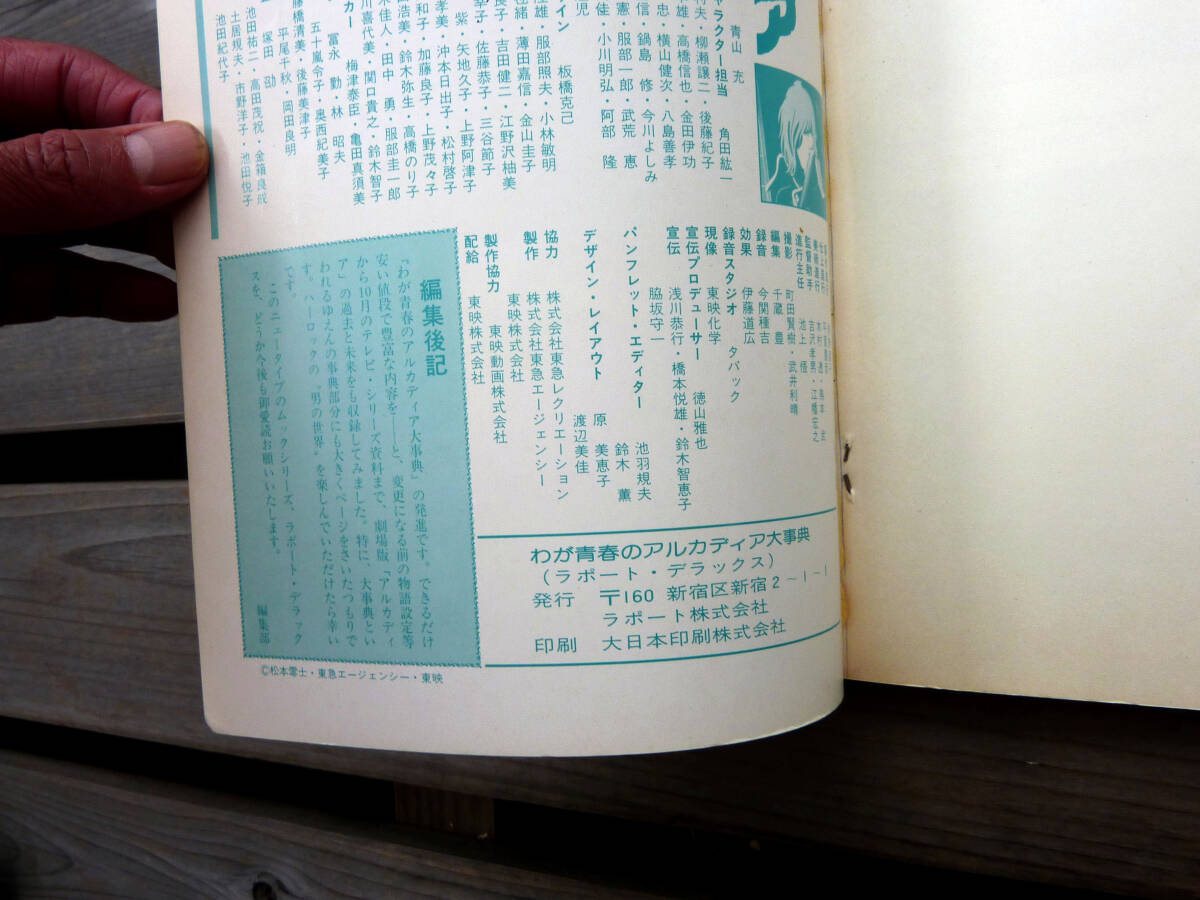 ア
青山 充
ャラクター担当
角田紘一
柳瀬譲二・後藤紀子
雄・高橋信也・金田伊功
忠・横山健次・八島善孝
信・鍋島 修・今川よしみ
憲・服部一郎・武荒 恵
佳・小川明弘・阿部 隆
児
イン
板橋克己
雄・服部照夫・小林敏明
緒・薄田嘉信・金山圭子
良子・吉田健二・江野沢柚美
幸子・佐藤恭子・三谷節子
紫・矢地久子・上野阿津子
孝美・沖本日出子・松村啓子
和子・加藤良子・上野茂々子
浩美・鈴木弥生・高橋のり子
木佳人・田中 勇・服部圭一郎
川喜代美・関口貴之・鈴木智子
カー
梅津泰臣 亀田真須美
冨永 勤・林 昭夫
五十嵐令子・奥西紀美子
藤橋清美・後藤美津子
平尾千秋・岡田良明
塚田 劭
池田祐二・高田茂祝・金箱良成
土居規夫・市野洋子・池田悦子
池田紀代子
監督助手 吉沢孝男・江幡宏之
進行主任 池上 悟
撮影 町田賢樹・武井利晴
編集 千蔵 豊
録音 今関種吉
効果 伊藤道広
録音スタジオ タバック
現像 東映化学
宣伝プロデューサー 徳山雅也
宣伝 浅川恭行・橋本悦雄・鈴木智恵子
脇坂守一
パンフレット・エディター 池羽規夫
鈴木 薫
デザイン・レイアウト 原 美恵子
渡辺美佳
協力 株式会社東急レクリエーション
製作 株式会社東急エージェンシー
東映株式会社
製作協力 東映動画株式会社
配給 東映株式会社
編集後記
『わが青春のアルカディア大事典』の発進です。できるだけ
安い値段で豊富な内容を――と、変更になる前の物語設定等
から10月のテレビ・シリーズ資料まで、劇場版『アルカディ
ア』の過去と未来をも収録してみました。特に、大事典とい
われるゆえんの事典部分にも大きくページをさいたつもりで
す。ハーロックの〝男の世界〟を楽しんでいただけたら幸い
です。
このニュータイプのムックシリーズ、ラポート・デラック
スを、どうか今後も御愛読お願いいたします。
編集部
わが青春のアルカディア大事典
(ラポート・デラックス)
発行 〒160 新宿区新宿2-1-1
ラポート株式会社
印刷 大日本印刷株式会社
©松本零士・東急エージェンシー・東映